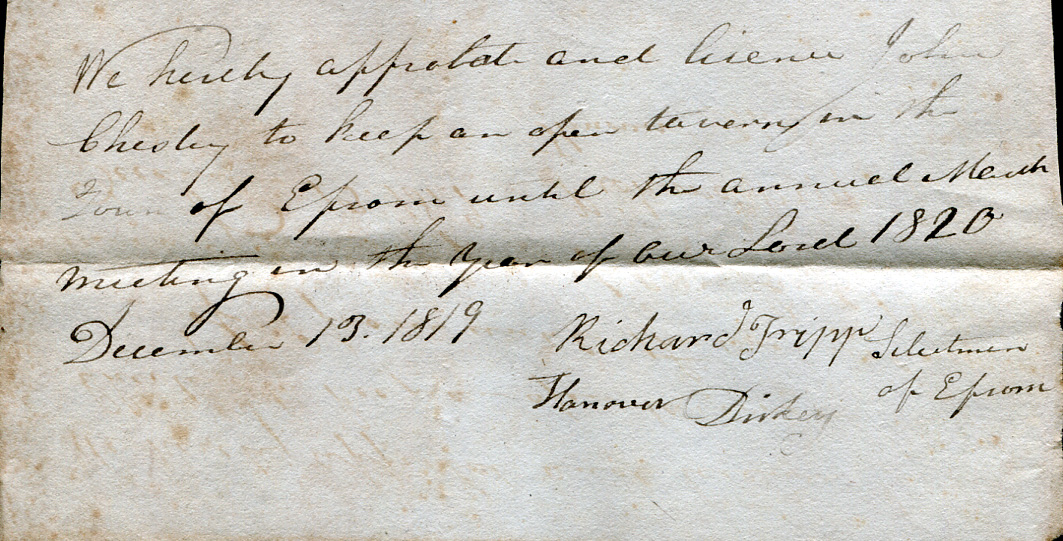 We hereby approbate and lisence John
Chesley to keep an open tavern in the
Town of Epsom until the annual March
meeting in the year of our Lord 1820
December 13. 1819 Richard Tripp Selectmen
Hanover Dickey of Epsom